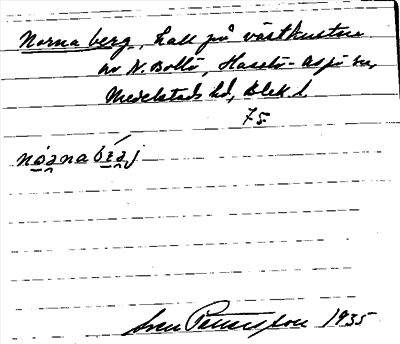 Norna berg, hall på västkusten
av N. Bollö, Hasslö- Aspö sn,
Medelstads hd, Blek. l.
75.
Sven Pettersson 1935